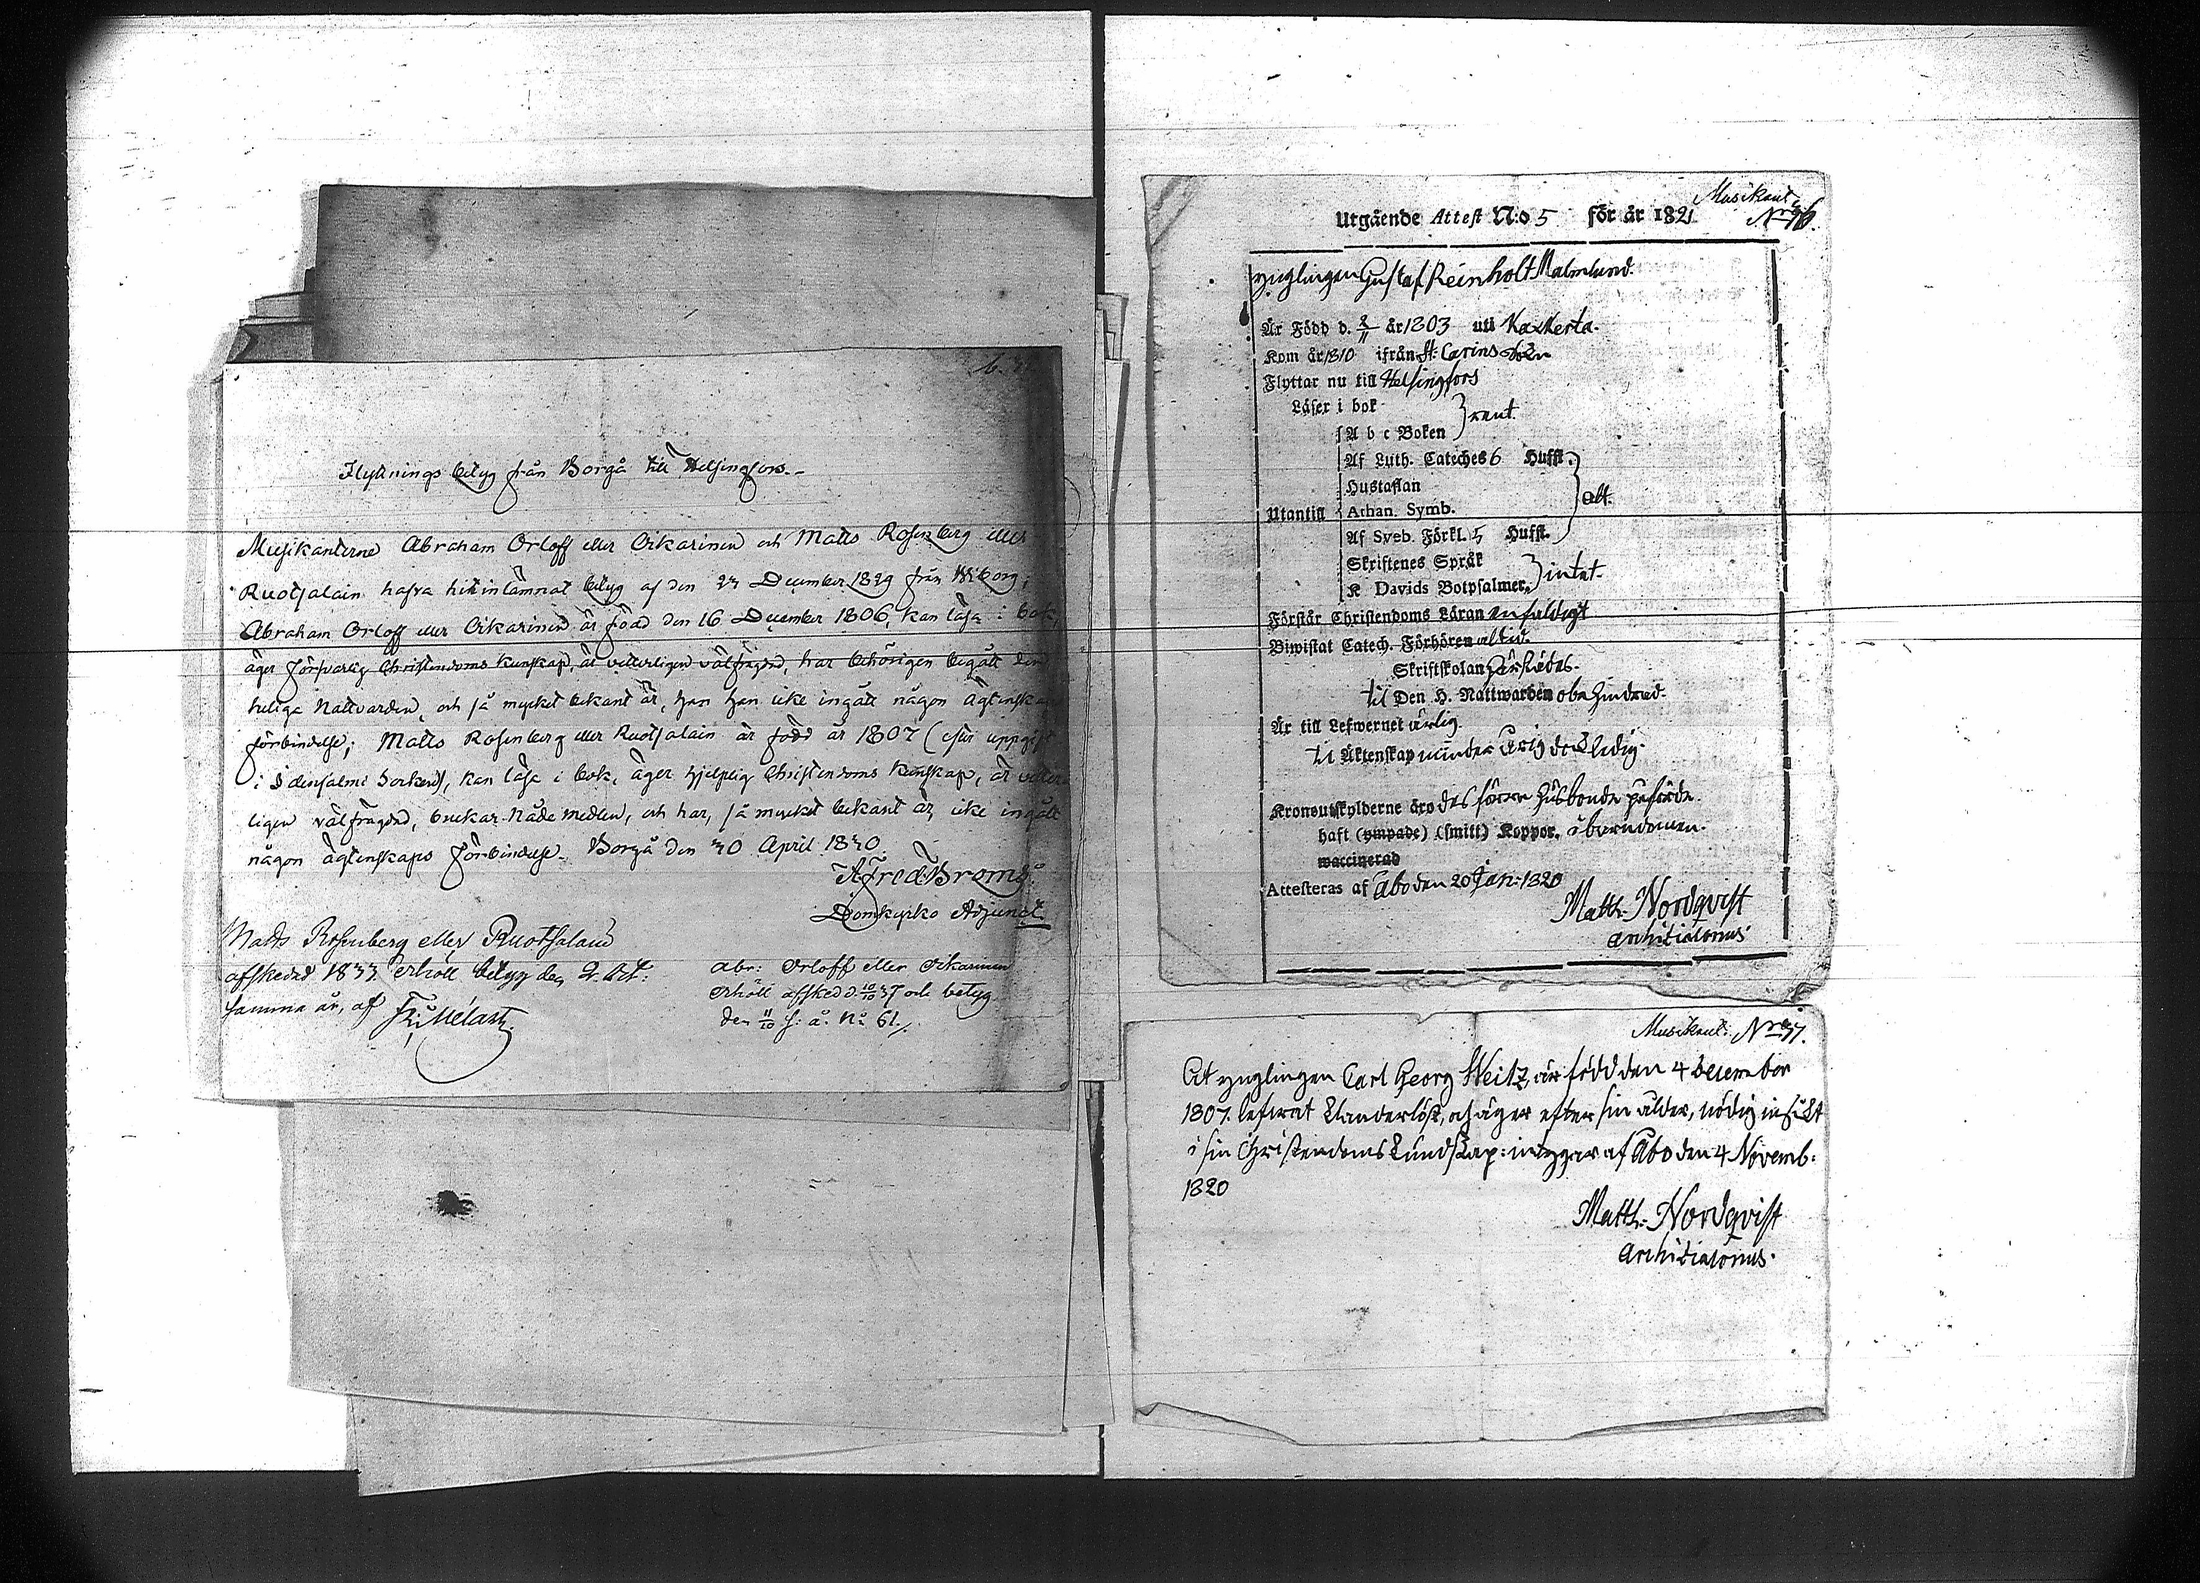 Flyttnings betyg från Borgå till Helsingfors.-
Musikanterne Abraham Orloff eller Oikarinen och Matts Rosenberg eller
Ruotsalain hafva hit inlämnat betyg af den 23 December 1829 från Wiborg;
Abraham Orloff eller Oikarinen är född den 16 December 1806, kan läsa i bok,
äger försvarlig Christendoms kunskap, är vitterligen välfrägdad, har behörigen begått den
heliga Nattvarden, och så mycket bekant är, han icke ingått någon ägtenskaps
förbindelse; Matts Rosenberg eller Ruotsalain är född år 1807 (efter uppgift
i Idensalmi Socken), kan läsa i bok, äger hjelplig Christendoms kunskap, är vitter-
ligen välfrägdad, brukar Nåde medlen, och har, så mycket bekant är, icke ingått
någon ägtenskaps förbindelse. Borgå den 30 April 1830.
Alfred Broms
Domkyrko Adjunct
Matts Rosenberg eller Ruotsalain
afskedad 1833 erhöll betyg den 2. Oct:
samma år, af
Abr: Orloff eller Oikarinen
Erhöll afsked d. 10/10 37 och betyg
den 11/10 s: å: No 61.
Musikant
Nr 76.
Utgående Attest N:o 5 för år 1821
ynglingen Gustaf Reinholt Malmlund.
Är Född d. 2/11 år 1803 uti Kaxkerta.
Kom år 1810 ifrån St: Carins
Flyttar nu till Helsingfors
Läser i bok } rent.
A b c Boken
Af Luth. Cateches 6 Hufst.
Hustaflan } alt.
Utantill Athan. Symb.
Af Sveb. Förkl. 5 Hufst.
Skriftenes Språk } intet.
K Davids Botpsalmer
Förstår Christendoms Läran enfaldigt
Biwistat Catech. Förhören altid.
Skriftskolan
til Den H. Nattwarden obehindrad.
Är till Lefwernet ärlig
til Äktenskap minder årig och ledig.
Kronoutskylderne äro des förra Husbonde påförde.
haft (ympade) (smitt) Koppor. i barndomen.
waccinerad
Attesteras af Åbo den 20 Jan: 1820
Matth. Nordqvist
Archidiaconus
Musikant: Nr 77.
At ynglingen Carl Georg Weitz, är född den 4 December
1807. lefwat klanderlöst, och äger efter sin ålder, nödig insikt
i sin Christendoms kundskap: intygar af Åbo den 4 Novemb:
1820
Matth. Nordqvist
Archidiaconus.